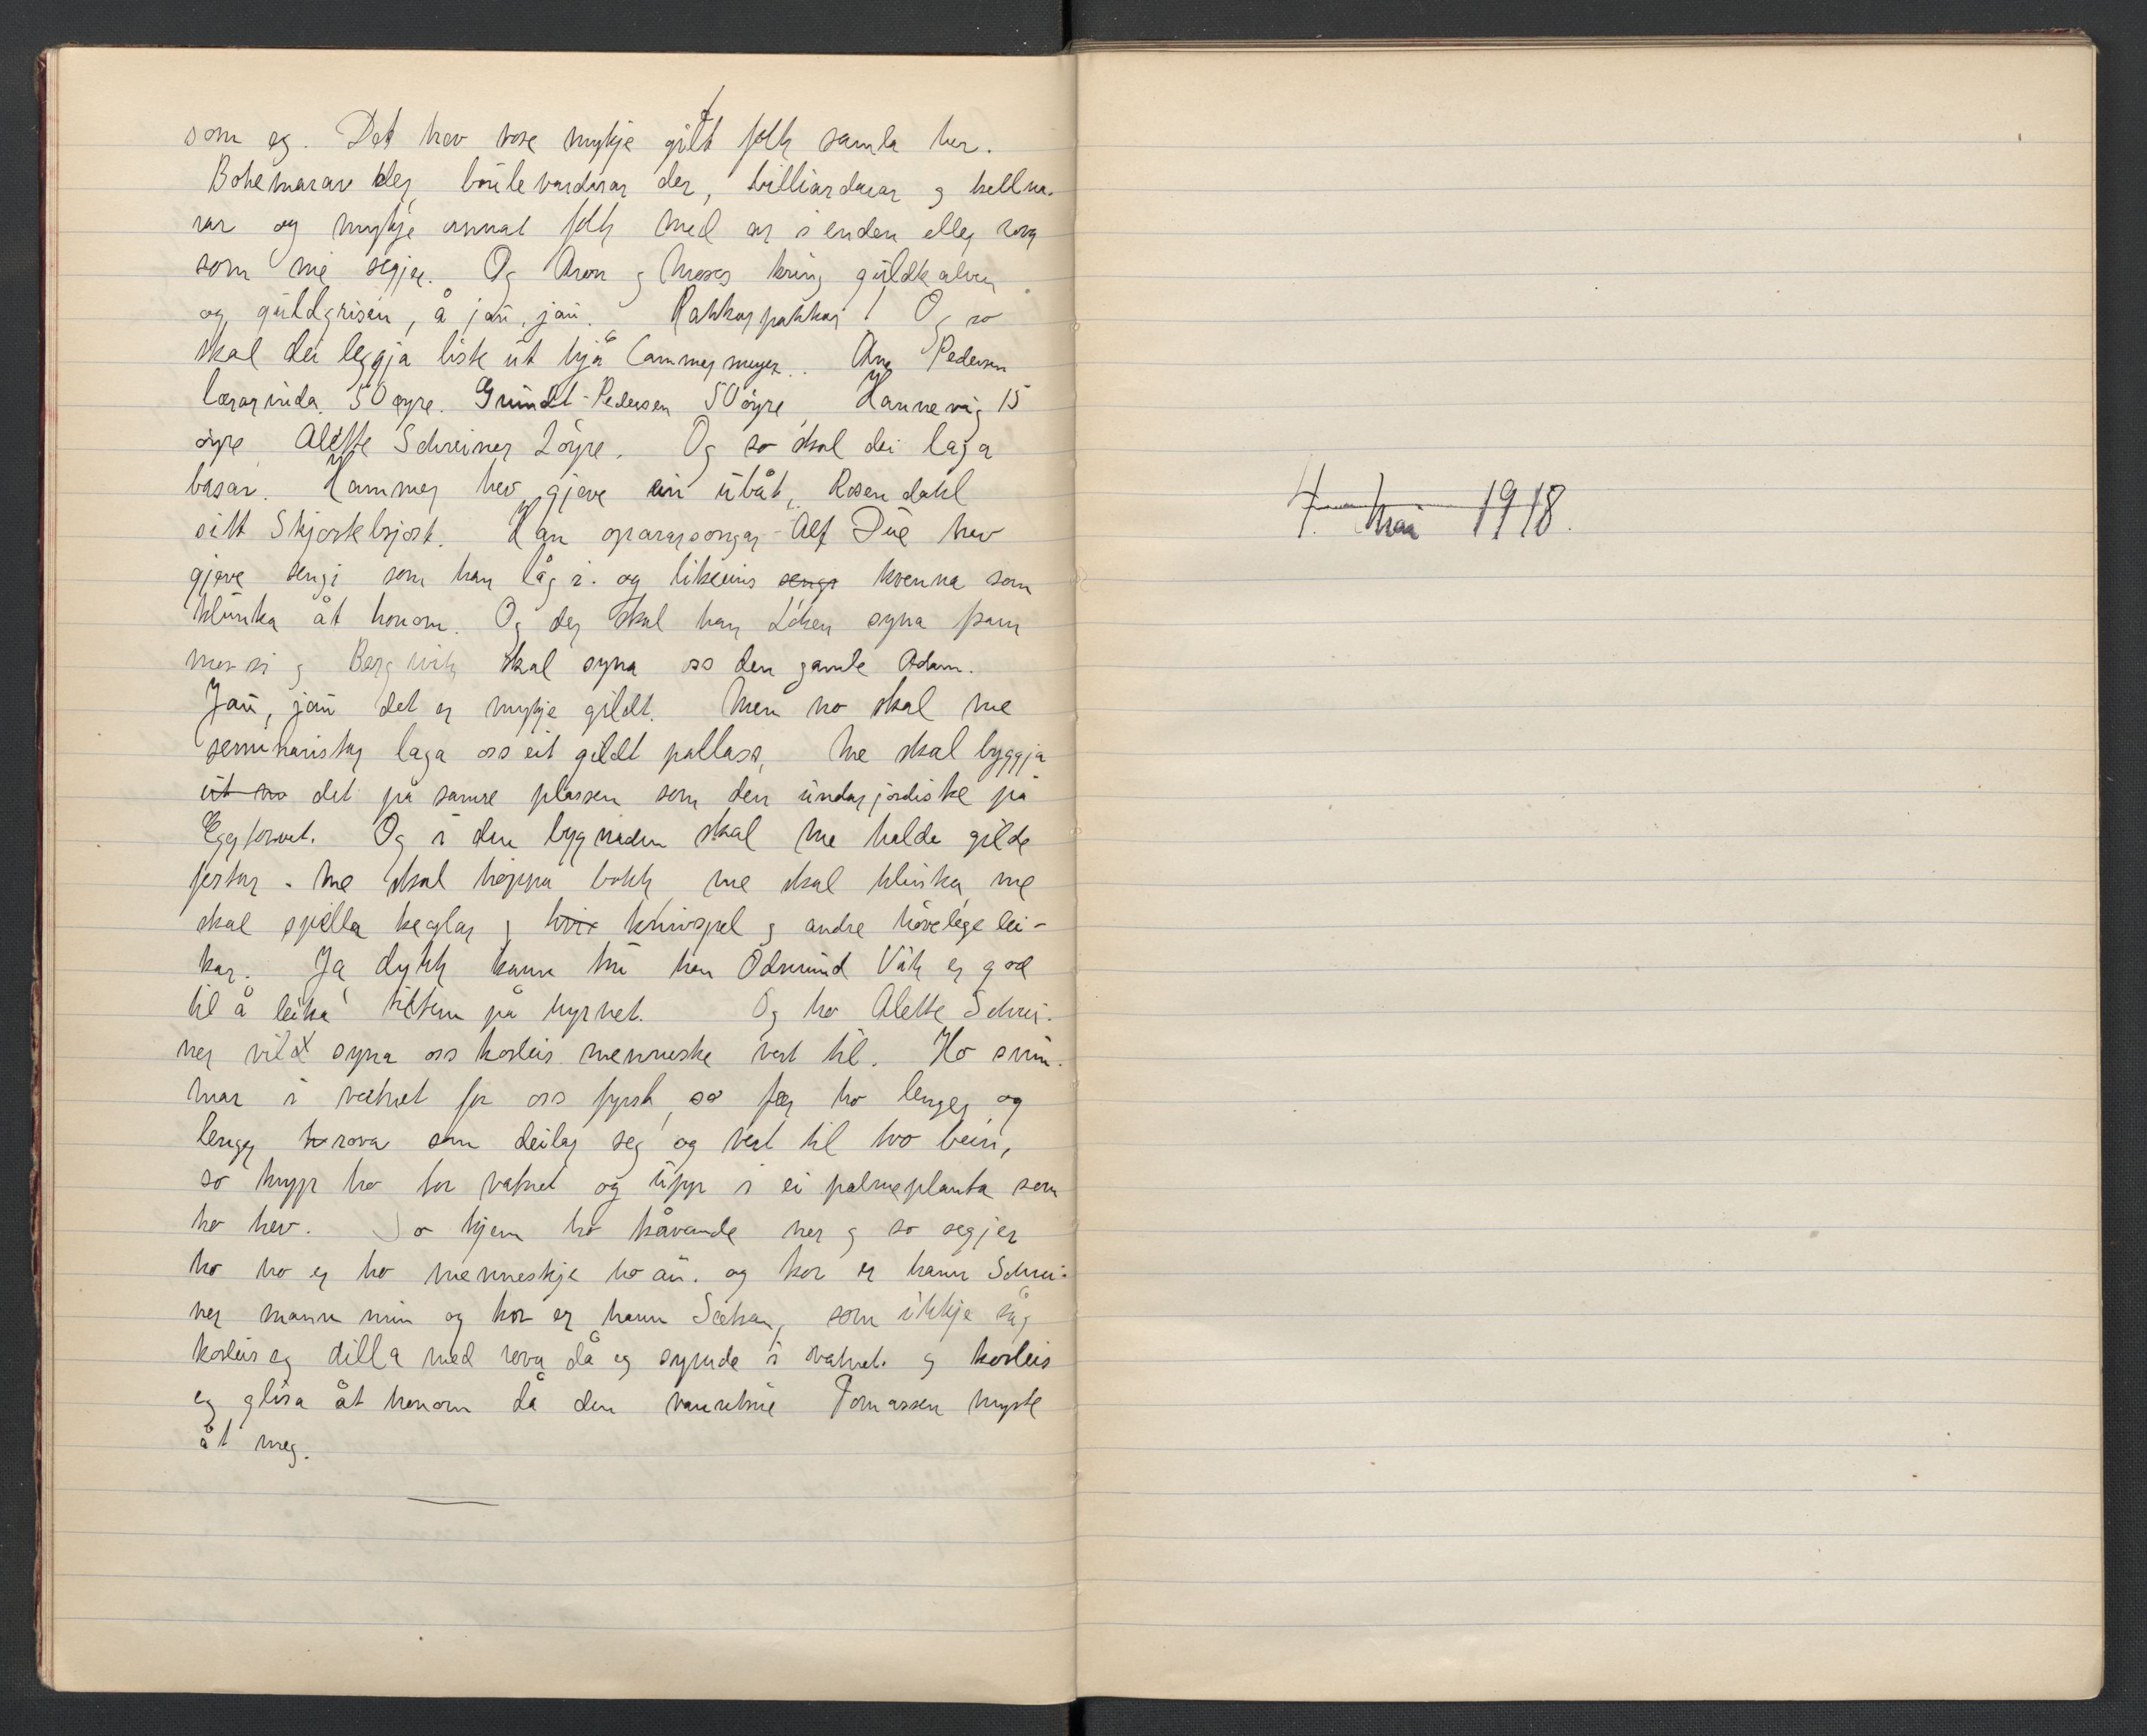 som eg. Det hev vore mykje gilt folk samla her.
Bohemarar der, boulevardirar der, billiardarar og kellna-
rar og mykje annat folk med ar i enden eller rova
som me segjer. Og Aron og Moses kring gullkalven
og gullgrisen, å jau, jau. Rakkarpakkar! Og so
skal dei leggja liste ut hjå Cammermeyer. Ana Pedersen
lærarinda 50 øyre. Grundt-Pedersen 50 øyre, Hannevig 15
øyre Alette Schreiner 2 øyre. Og so skal dei laga
basar. Hammer hev gjeve ein ubåt, Rosendahl
sitt Skjortebrjost. Han operasongar Alf Due hev
gjeve sengi som han låg i. og likeeins senga kvenna som
klunka åt honom. Og der skal han syna fram
og skal syna oss den gamle Adam.
Jau, jau det er mykje gildt. Men no skal me
seminaristar laga oss eit gildt pallass, Me skal byggja
ut no det på same plassen som den underjordiske på
Eggtorvet. Og i den bygnaden skal me halda gilde
festar. Me skal hoppa bukk me skal klinka, me
skal spella keglar og knivspel og andre høvelege lei-
kar. Ja dykk kann tru han Odmund Vik er god
til å leika tilten på hyrnet. Og ho Alette Schrei-
ner vild syna oss korleis menneske vert til. Ho sym-
mar i vatnet for oss fyrst, so fær ho lenger og
lenger rova som deilar seg og vert til two bein,
so kryp ho or vatnet og upp i ei palmeplanta som
ho hev. So kjem ho kåvande ner og so segjer
ho ho er ho menneskje ho au. og kor er hann Schrei-
ner mann min og kor er hann Scetsan, som ikkje såg
korleis eg dilla med rova då eg symde i vatnet. og korleis
eg glisa åt honom då den vanntrue Tomassen myste
åt meg.
4. Mai 1918.